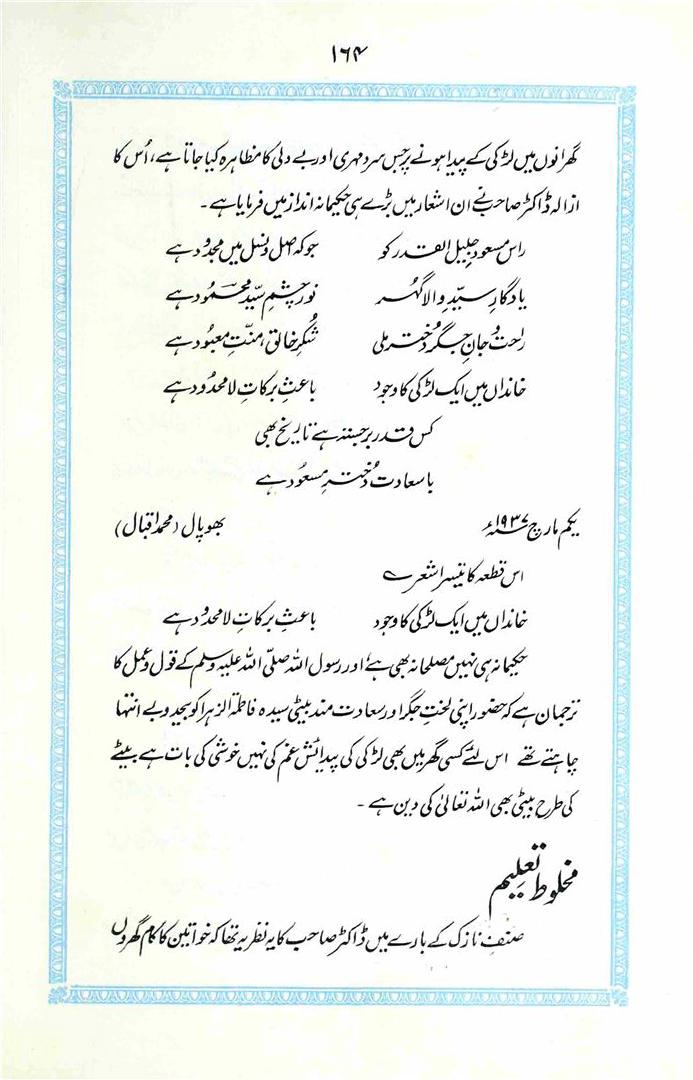 ۱۶۴
گھرانوں میں لڑکی کے پیدا ہونے پر جس سرد مہری اور بے دلی کا مظاہرہ کیا جاتا ہے، اُس کا
ازالہ ڈاکٹر صاحب نے ان اشعار میں بڑے ہی حکیمانہ انداز میں فرمایا ہے۔
راس مسعود جلیل القدر کو جو کہ اصل و نسل میں مجدود ہے
یادگارِ سیّدِ والا گہر نورِ چشمِ سیّد محمود ہے
راحت و جانِ جگر دُختر ملی شُکرِ خالق، منّتِ معبُود ہے
خانداں میں ایک لڑکی کا وجود باعثِ برکاتِ لا محدُود ہے
کس قدر برجستہ ہے تاریخ بھی
با سعادت دُخترِ مسعُود ہے
یکم مارچ ۱۹۳۷ء بھوپال (محمد اقبال)
اس قطعہ کا تیسرا شعر ے
خانداں میں ایک لڑکی کا وجود باعثِ برکاتِ لا محدُود ہے
حکیمانہ ہی نہیں مصلحانہ بھی ہے اور رسول اللہ صلّی اللہ علیہ وسلم کے قول و عمل کا
ترجمان ہے کہ حضور اپنی لختِ جگر اور سعادت مند بیٹی سیدہ فاطمۃ الزہرا کو بیحد و بے انتہا
چاہتے تھے اس لئے کسی گھر میں بھی لڑکی کی پیدائش غم کی نہیں خوشی کی بات ہے بیٹے
کی طرح بیٹی بھی اللہ تعالیٰ کی دین ہے۔
مخلوط تعلیم
صنفِ نازک کے بارے میں ڈاکٹر صاحب کا یہ نظریہ تھا کہ خواتین کا کام گھروں